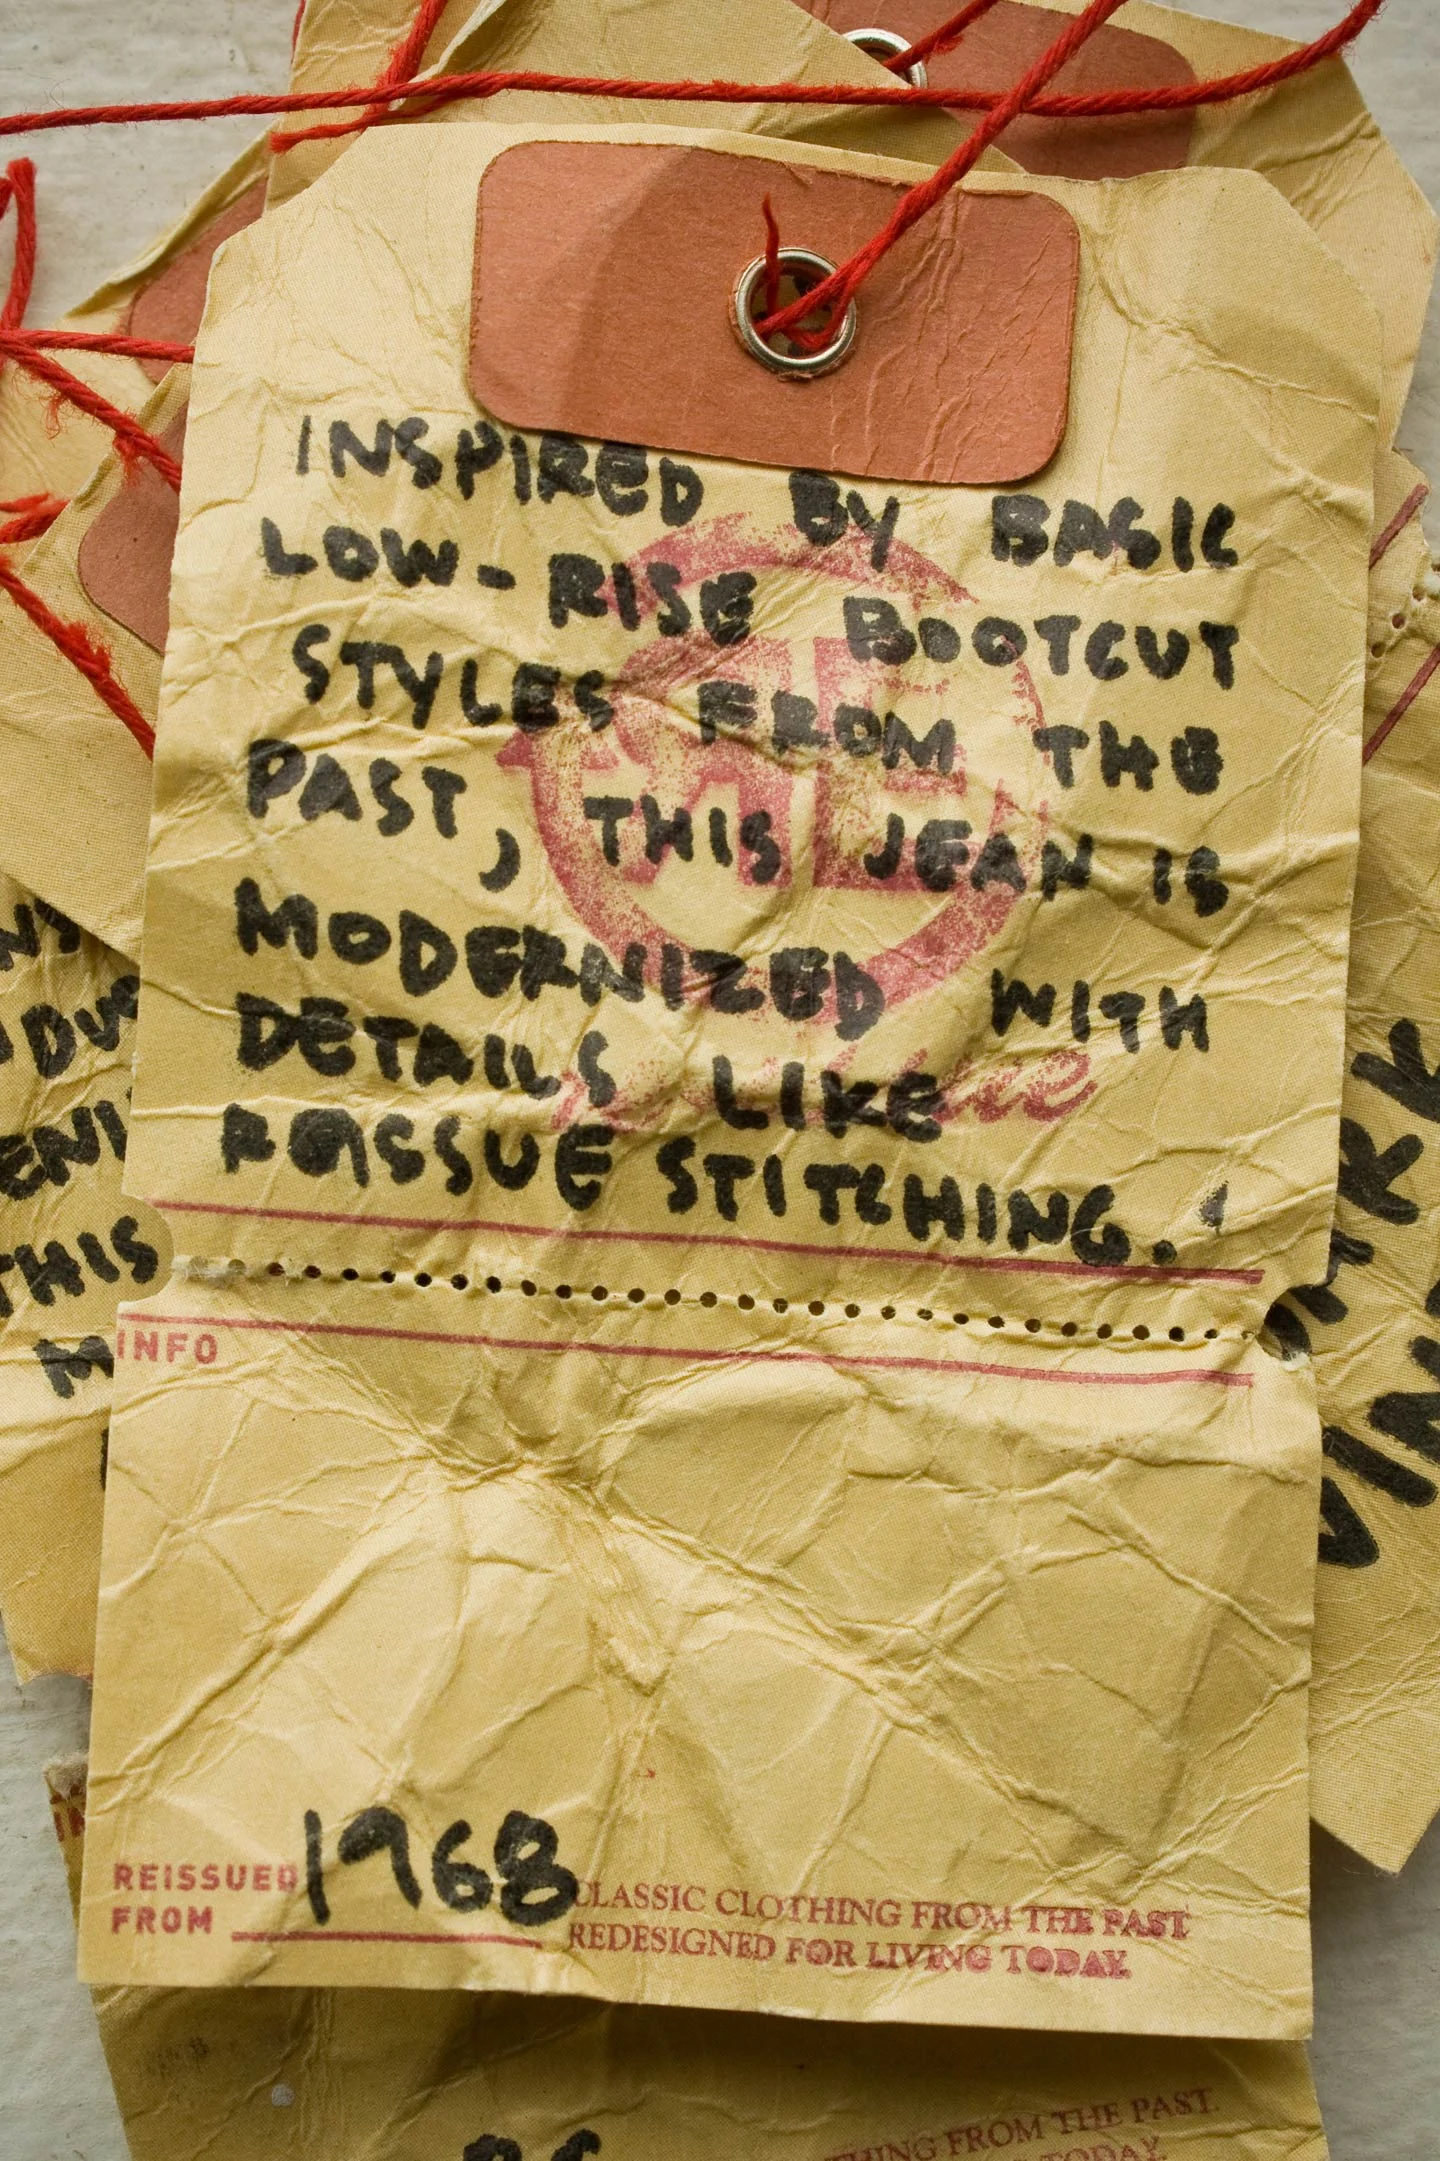 INSPIRED BY BASIC
LOW-RISE BOOTCUT
STYLES FROM THE
PAST, THIS JEAN IS
MODERNIZED WITH
DETAILS LIKE
STITCHING.
INFO
REISSUED
FROM
1968
CLASSIC CLOTHING FROM THE PAST
REDESIGNED FOR LIVING TODAY.
THIS
FROM THE PAST
TODAY.